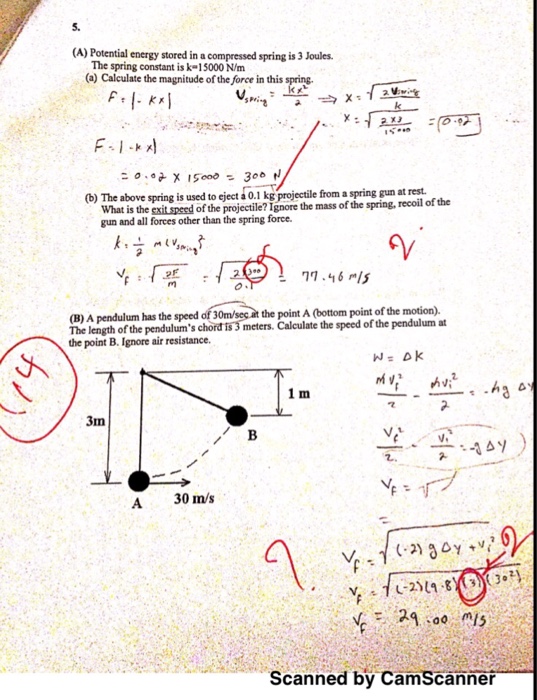 5.
(A) Potential energy stored in a compressed spring is 3 Joules.
The spring constant is k=15000 N/m
(a) Calculate the magnitude of the force in this spring.
F = |- kx|
Vspring = kx²/2 ⇒ x = √(2 Vspring/k)
x = √(2x3/15000) = 0.02
F = |- kx|
= 0.02 x 15000 = 300 N
(b) The above spring is used to eject a 0.1 kg projectile from a spring gun at rest.
What is the exit speed of the projectile? Ignore the mass of the spring, recoil of the
gun and all forces other than the spring force.
k = 1/2 m (Vspring)²
Vf = √(2F/m) = √(2(300)/0.1) = 77.46 m/s
2
(B) A pendulum has the speed of 30m/sec at the point A (bottom point of the motion).
The length of the pendulum's chord is 3 meters. Calculate the speed of the pendulum at
the point B. Ignore air resistance.
14
3m
1 m
B
A
30 m/s
W = ΔK
mvf²/2 - mvi²/2 = -mg Δy
vf²/2 - vi²/2 = -gΔy
Vf = √
=
Vf = √((-2) g Δy + vi²)
Vf = √((-2)(9.8)(3)(30²)
Vf = 29.00 m/s
2
Scanned by CamScanner